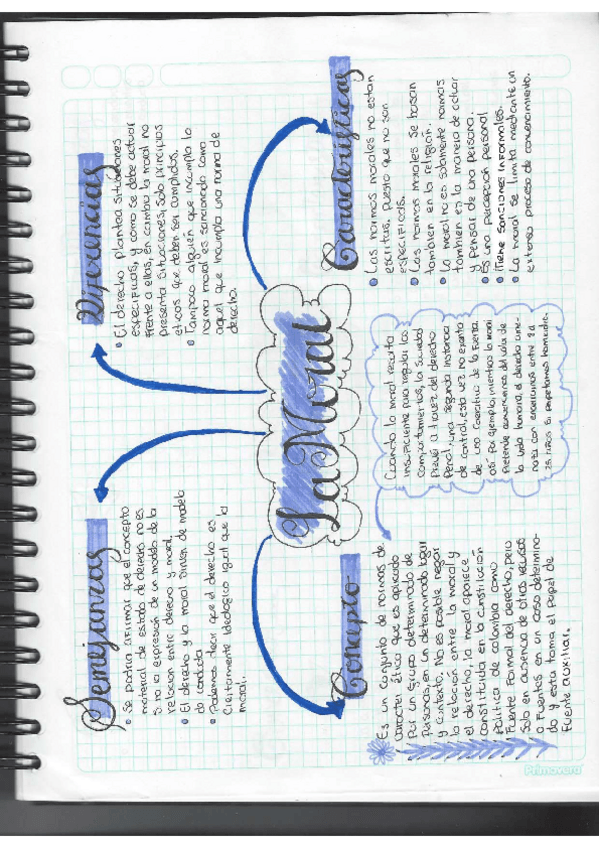 La Moral
Semejanzas
• Se podria afirmar que el concepto
material de estado de derecho no es
si no la expresión de un modelo de la
relacion entre derecho y moral.
• El derecho y la moral sirven de modelo
de conducta
• Podemos decir que el derecho es
estrictamente ideologico igual que la
moral.
Diferencias
• El derecho plantea situaciones
especificas, y como se debe actuar
frente a ellas, en cambio la moral no
presenta situaciones, solo principios
eticos que deben ser cumplidos.
• Tampoco alguien que incumpla la
norma moral es sancionado como
aquel que incumpla una norma de
derecho.
Concepto
Es un conjunto de normas de
caracter ético que es aplicado
por un grupo determinado de
personas, en un determinado lugar
y contexto. No es posible negar
la relación entre la moral y
el derecho, la moral aparece
constituida en la constitución
politica de colombia como
fuente formal del derecho, pero
solo en ausencia de otros recursos
o fuentes en un caso determina-
do y esta toma el papel de
fuente auxiliar.
Cuando la moral resulta
insuficiente para regular los
comportamientos, la sociedad
preve a travez del derecho
penal, una segunda instancia
de control, esta vez no exenta
de uso coercitivo de la fuerza
asi por ejemplo, mientras la moral
pretende convencernos del valor de
la vida humana, el derecho ame-
naza con encerrarnos entre
años si cometemos homicidio.
Caracteristicas
• Las normas morales no estan
escritas. Puesto que no son
especificas.
• Las normas morales se basan
tambien en la religión.
• La moral no es solamente normas
tambien es la manera de actuar
y pensar de una persona.
• Es una percepción personal
• Tiene sanciones informales.
• La moral se limita mediante un
extenso proceso de convencimiento.
Primavera